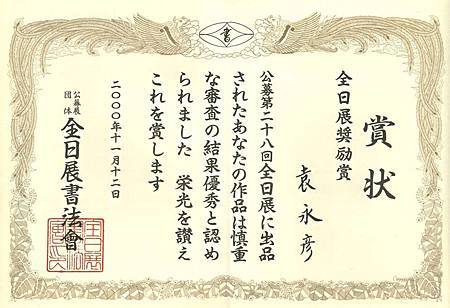 書
賞状
全日展奨励賞
袁永彦
公募第二十八回全日展に出品
されたあなたの作品は慎重
な審査の結果優秀と認め
られました 栄光を讃え
これを賞します
二〇〇〇年十一月十二日
公募展
団体
全日展書法會